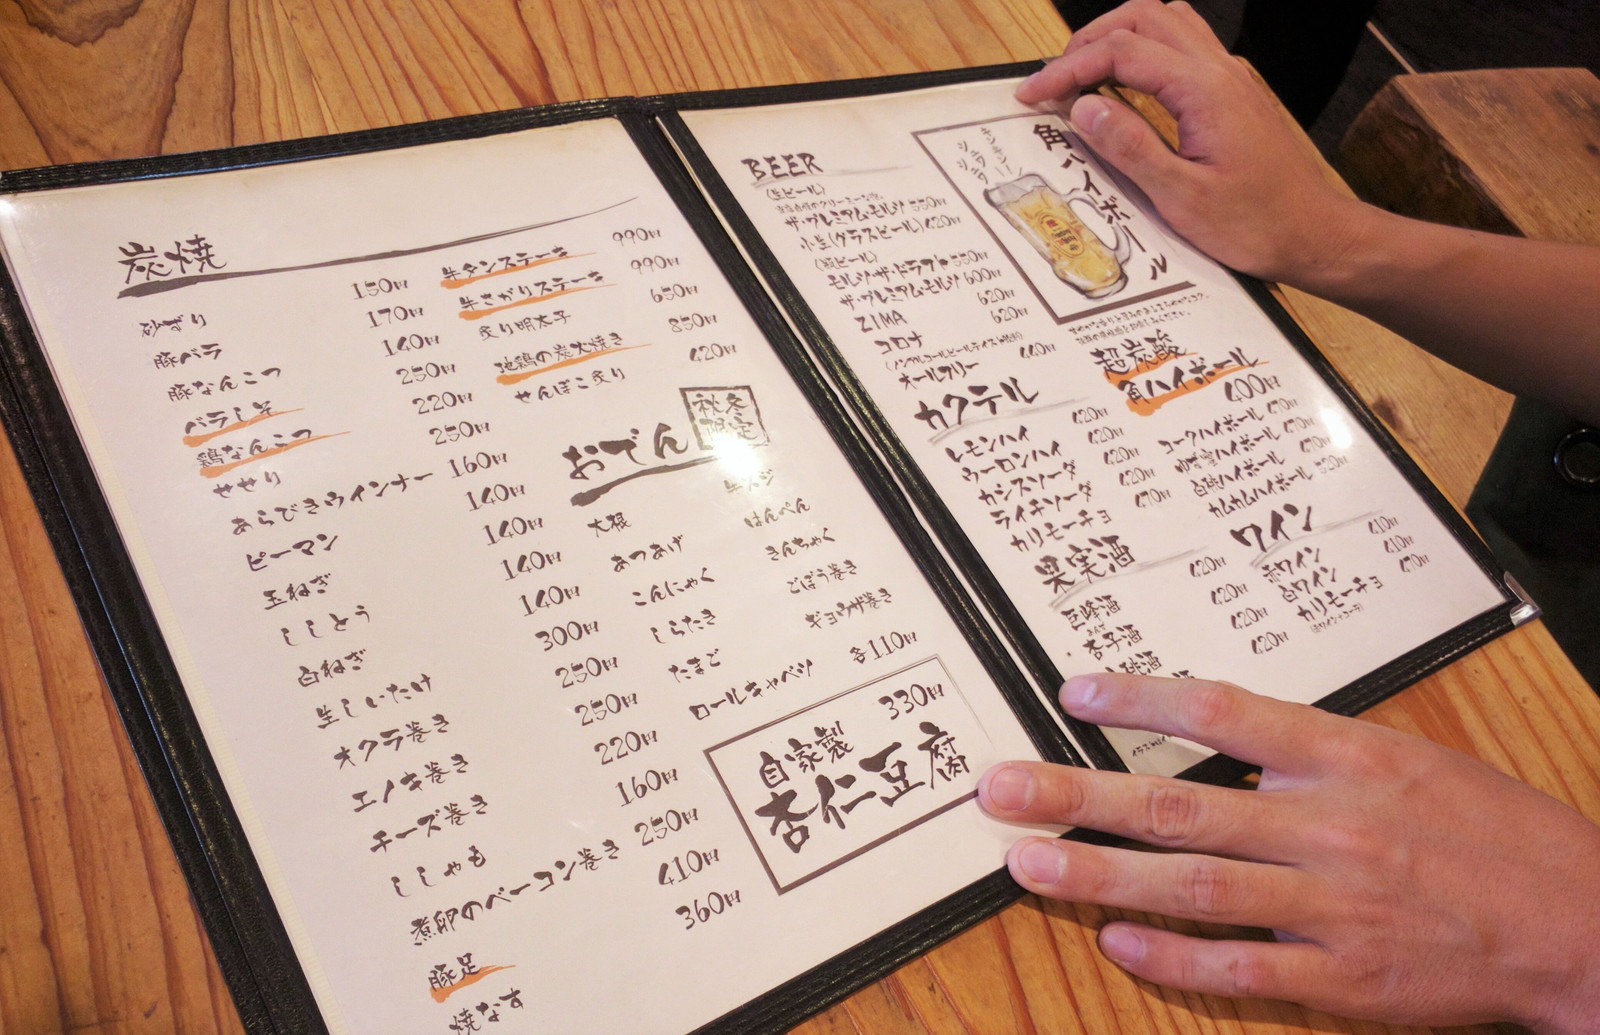 炭焼
砂ずり 150円
豚バラ 170円
豚なんこつ 140円
バラしそ 250円
鶏なんこつ 220円
せせり 250円
あらびきウインナー 160円
ピーマン 140円
玉ねぎ 140円
ししとう 140円
白ねぎ 140円
生しいたけ 300円
オクラ巻き 250円
エノキ巻き 250円
チーズ巻き 220円
ししゃも 160円
煮卵のベーコン巻き 250円
豚足 410円
焼なす 360円
牛タンステーキ 990円
牛さがりステーキ 990円
炙り明太子 650円
地鶏の炭火焼き 850円
せんぽこ炙り 420円
おでん
秋冬限定
大根
あつあげ
こんにゃく
しらたき
たまご
ロールキャベツ
牛スジ
はんぺん
きんちゃく
ごぼう巻き
ギョウザ巻き
各110円
自家製 330円
杏仁豆腐
BEER
(生ビール)
ザ・プレミアム・モルツ 550円
小生(グラスビール) 420円
(瓶ビール)
モルツ・ザ・ドラフト 550円
ザ・プレミアム・モルツ 600円
ZIMA 620円
コロナ 620円
(ノンアルコールビールテイスト飲料)
オールフリー 440円
カクテル
レモンハイ 420円
ウーロンハイ 420円
カシスソーダ 420円
ライチソーダ 420円
カリモーチョ 470円
果実酒
巨峰酒 420円
杏子酒 420円
420円
420円
キンキン!!
シュワシュワ
角ハイボール
超炭酸
角ハイボール 400円
コークハイボール 470円
470円
白桃ハイボール 470円
カムカムハイボール 520円
ワイン
赤ワイン 410円
白ワイン 410円
カリモーチョ 470円
(赤ワイン+コーラ)